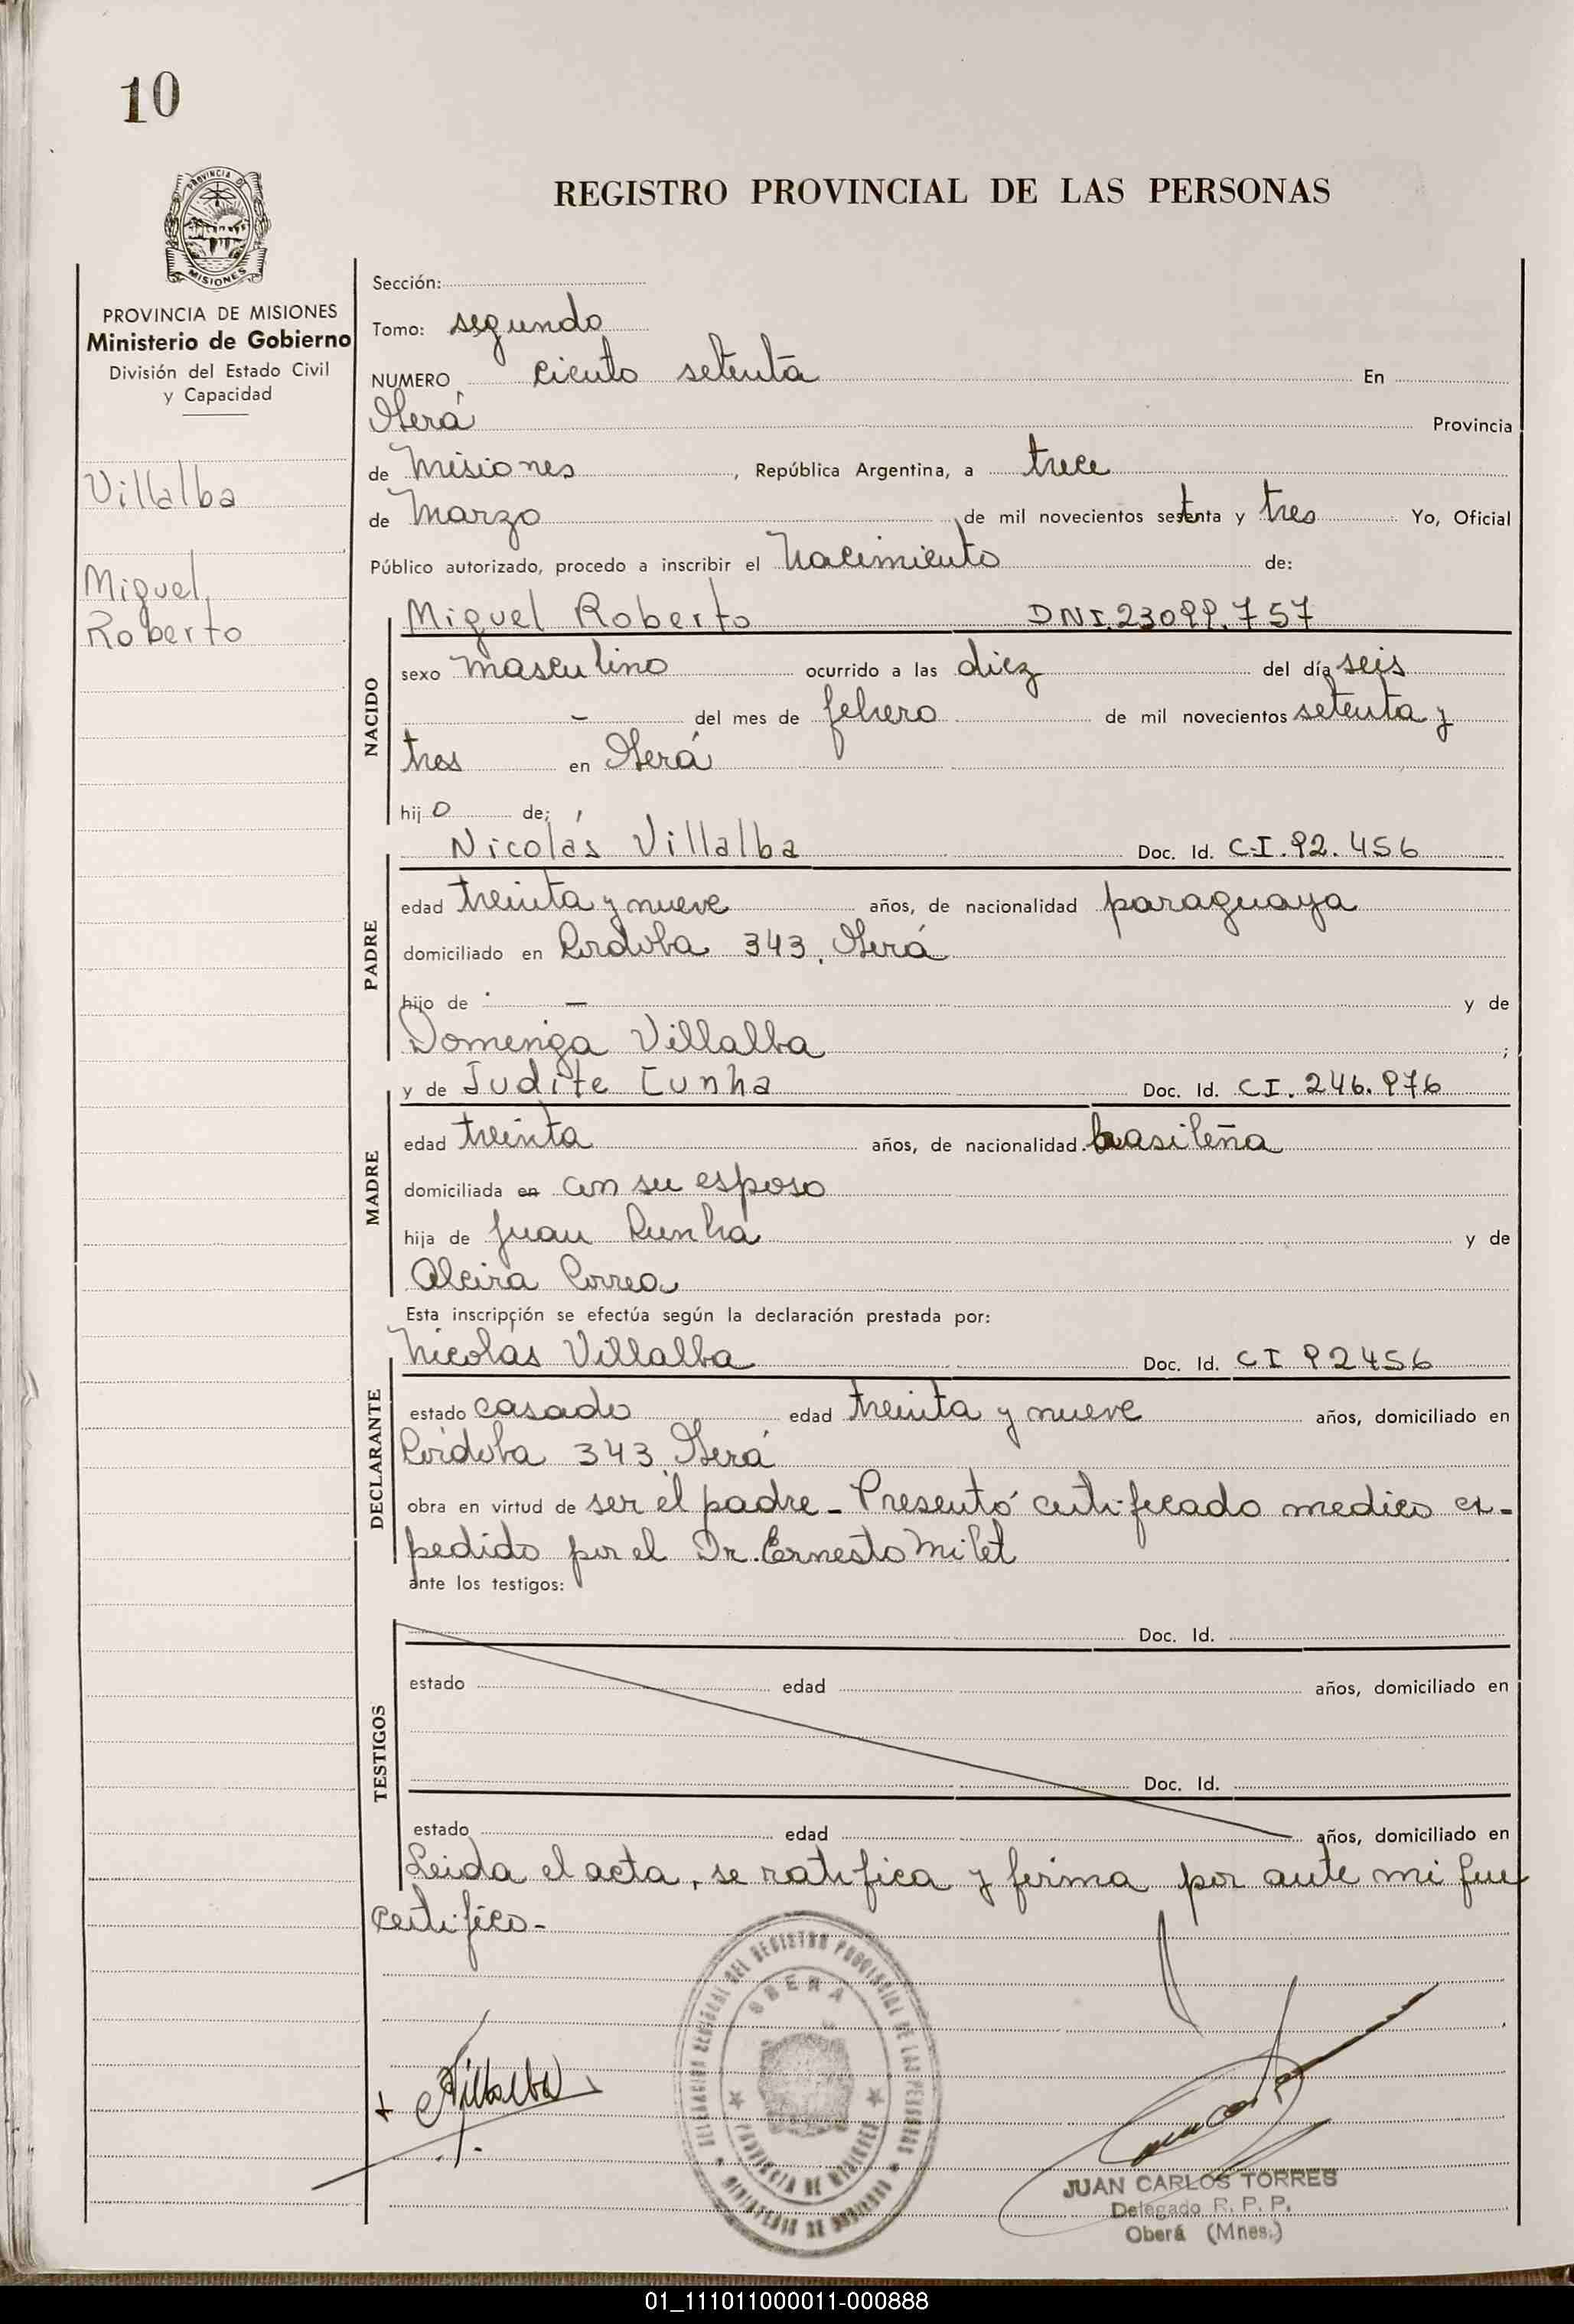 10
PROVINCIA DE
MISIONES
REGISTRO PROVINCIAL DE LAS PERSONAS
PROVINCIA DE MISIONES
Ministerio de Gobierno
División del Estado Civil
y Capacidad
Villalba
Miguel
Roberto
Sección:
Tomo: segundo
NUMERO ciento setenta En
Oberá Provincia
de Misiones, República Argentina, a trece
de Marzo de mil novecientos setenta y tres Yo, Oficial
Público autorizado, procedo a inscribir el Nacimiento de:
NACIDO
Miguel Roberto DNI.23099.757
sexo masculino ocurrido a las diez del día seis
- del mes de febrero de mil novecientos setenta y
tres en Oberá
hijo de:
PADRE
Nicolás Villalba Doc. Id. C.I. 92.456
edad treinta y nueve años, de nacionalidad paraguaya
domiciliado en Córdoba 343. Oberá
hijo de - y de
Domeniga Villalba ;
MADRE
y de Judite Cunha Doc. Id. CI. 246.976
edad treinta años, de nacionalidad brasileña
domiciliada en con su esposo
hija de Juan Cunha y de
Alcira Correa
Esta inscripción se efectúa según la declaración prestada por:
DECLARANTE
Nicolás Villalba Doc. Id. CI 92456
estado casado edad treinta y nueve años, domiciliado en
Córdoba 343 Oberá
obra en virtud de ser el padre - Presentó certificado medico ex-
pedido por el Dr. Ernesto Milet
ante los testigos:
TESTIGOS
Doc. Id.
estado edad años, domiciliado en
Doc. Id.
estado edad años, domiciliado en
Leida el acta, se ratifica y firma por ante mi que
certifico -
DELEGACION SECCIONAL DEL REGISTRO PROVINCIAL DE LAS PERSONAS
OBERA
PROVINCIA DE MISIONES
MINISTERIO DE GOBIERNO
NVillalba
JUAN CARLOS TORRES
Delegado R. P. P.
Oberá (Mnes.)
01_111011000011-000888